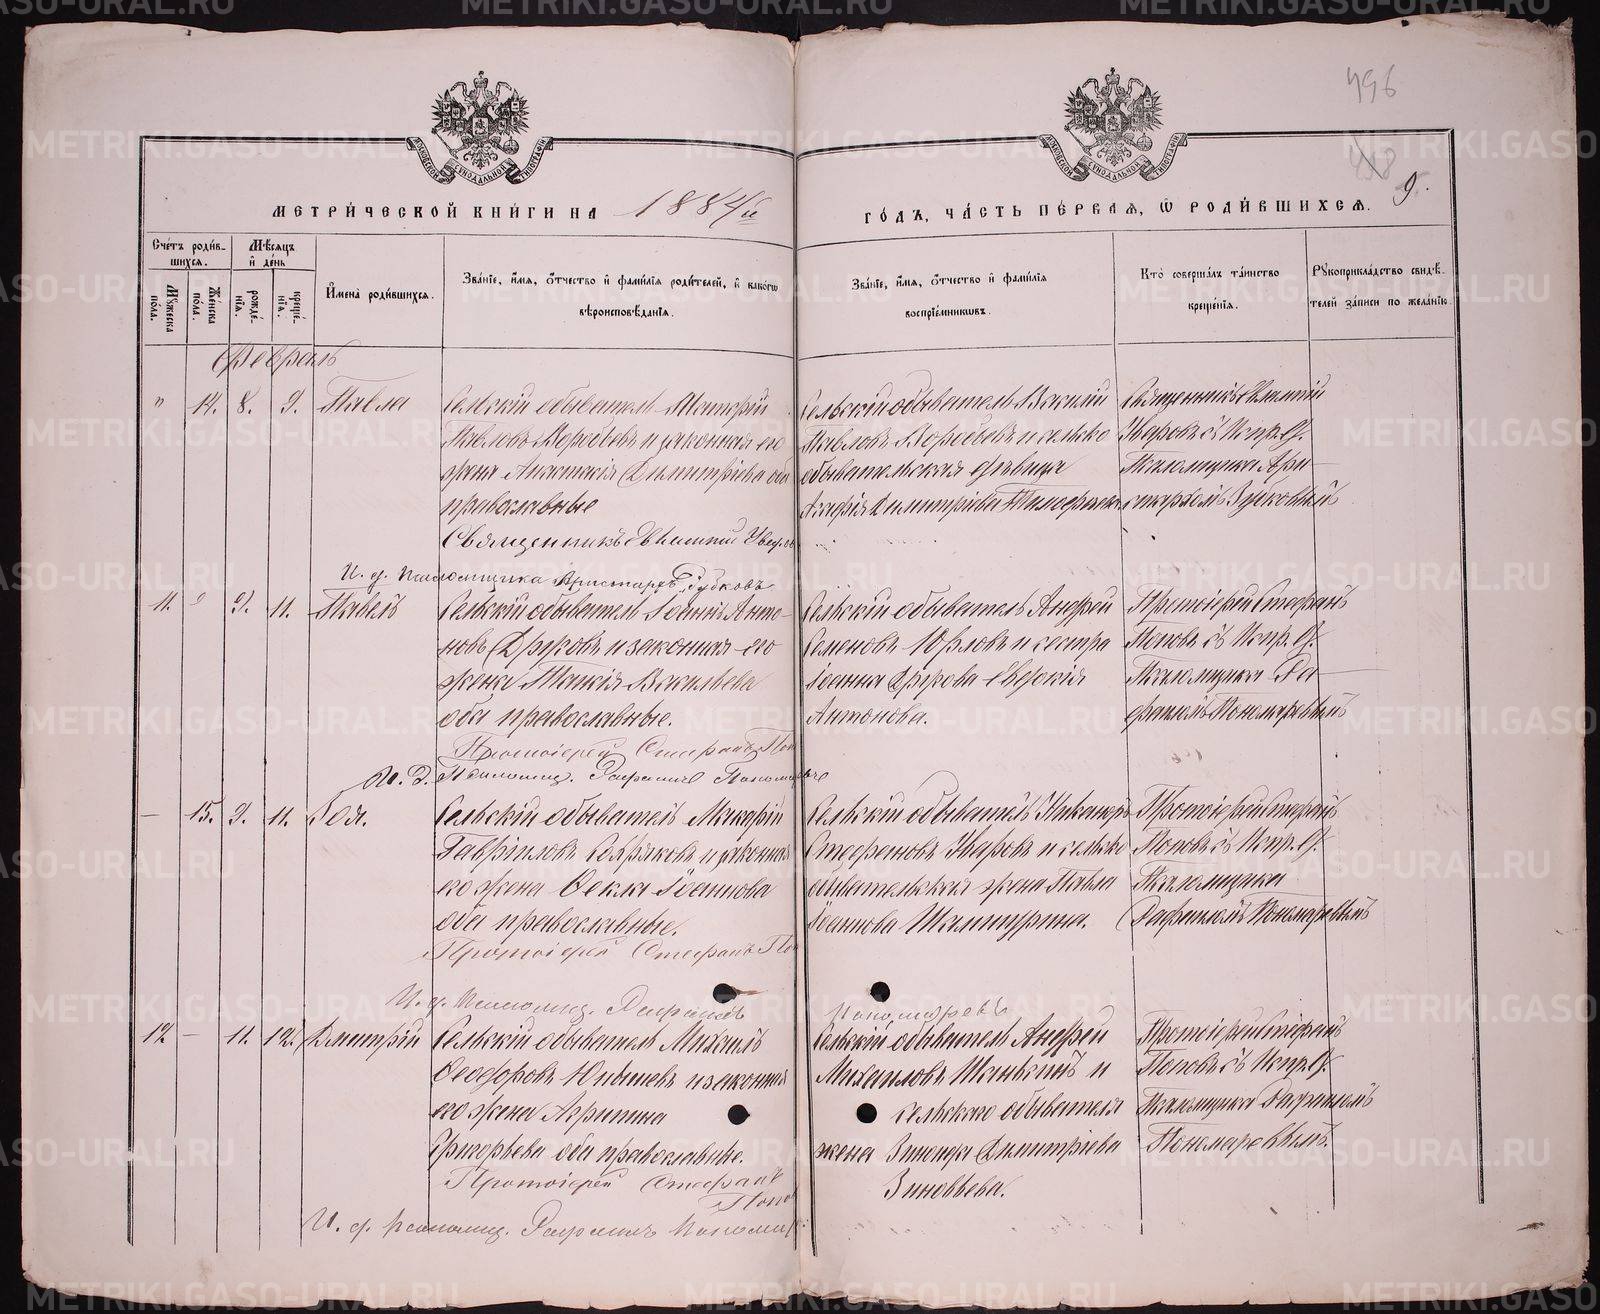 496
МЕТРИ́ЧЕСКОЙ КНИ́ГИ НА 1884й ГО́ДЪ, ЧА́СТЬ ПЕ́РВАЯ, Ѡ РОДИ́ВШИХСЯ.
9.
Сче́тъ роди́в-
шихся.
Му́жеска по́ла.
Же́нска по́ла.
Мѣ́сяцъ и де́нь
рожде́-
нїя.
креще́-
нїя.
Имена̀ роди́вшихся.
Зва́нїе, и́мя, о́тчество и фами́лїя роди́телей, и како́гѡ
вѣроисповѣ́данїя.
Зва́нїе, и́мя, о́тчество и фами́лїя
воспрїе́мникѡвъ.
Кто̀ соверша́лъ та́инство
креще́нїя.
Рꙋкоприкла́дство свидѣ́-
телей за́писи по жела́нїю.
Февраль
" 14. 8. 9. Павла
Сельскій обыватель
Павловъ Воробьевъ и законная его
жена Анастасія Димитріева оба
православные
Священникъ Евѳимій Уваровъ
И. д. псаломщика Аристархъ Зубковъ
Сельскій обыватель Василій
Павловъ Воробьевъ и сельско
обывательская дѣвица
Агафія Димитріева
Священникъ Евѳимій
Уваровъ съ Испр. д.
Псаломщика Ари-
стархомъ Зубковымъ
11. 9. 11. Павелъ
Сельскій обыватель Іоаннъ Анто-
новъ и законная его
жена Таисія Васильева
оба православные.
Протоіерей Стефанъ Поп
И. д. Псаломщ. Рафаилъ Пономаревъ
Сельскій обыватель Андрей
Семеновъ Юрловъ и сестра
Іоанна Евдокія
Антонова.
Протоіерей Стефанъ
Поповъ съ Испр. д.
Псаломщика Ра-
фаиломъ Пономаревымъ
— 15. 9. 11. Зоя.
Сельскій обыватель Макарій
Гавріиловъ и законная
его жена Ѳекла Іоаннова
оба православные.
Протоіерей Стефанъ Поп
И. д. Псаломщ. Рафаилъ Пономаревъ
Сельскій обыватель Никаноръ
Стефановъ Уваровъ и сельско
обывательская жена Павла
Іоаннова Шамшурина.
Протоіерей Стефанъ
Поповъ съ Испр. д.
Псаломщика
Рафаиломъ Пономаревымъ
12. — 11. 12. Дмитрій
Сельскій обыватель Михаилъ
Ѳеодоровъ и законная
его жена Агрипина
Григорьева оба православные.
Протоіерей Стефанъ
Попов
И. д. псаломщ. Рафаилъ Пономар
Сельскій обыватель Андрей
Михаиловъ Шанькинъ и
сельскаго обывателя
жена Зинаида Димитріева
Зиновьева.
Протоіерей Стефанъ
Поповъ съ Испр. д.
Псаломщика Рафаиломъ
Пономаревымъ.
METRIKI.GASO-URAL.RU